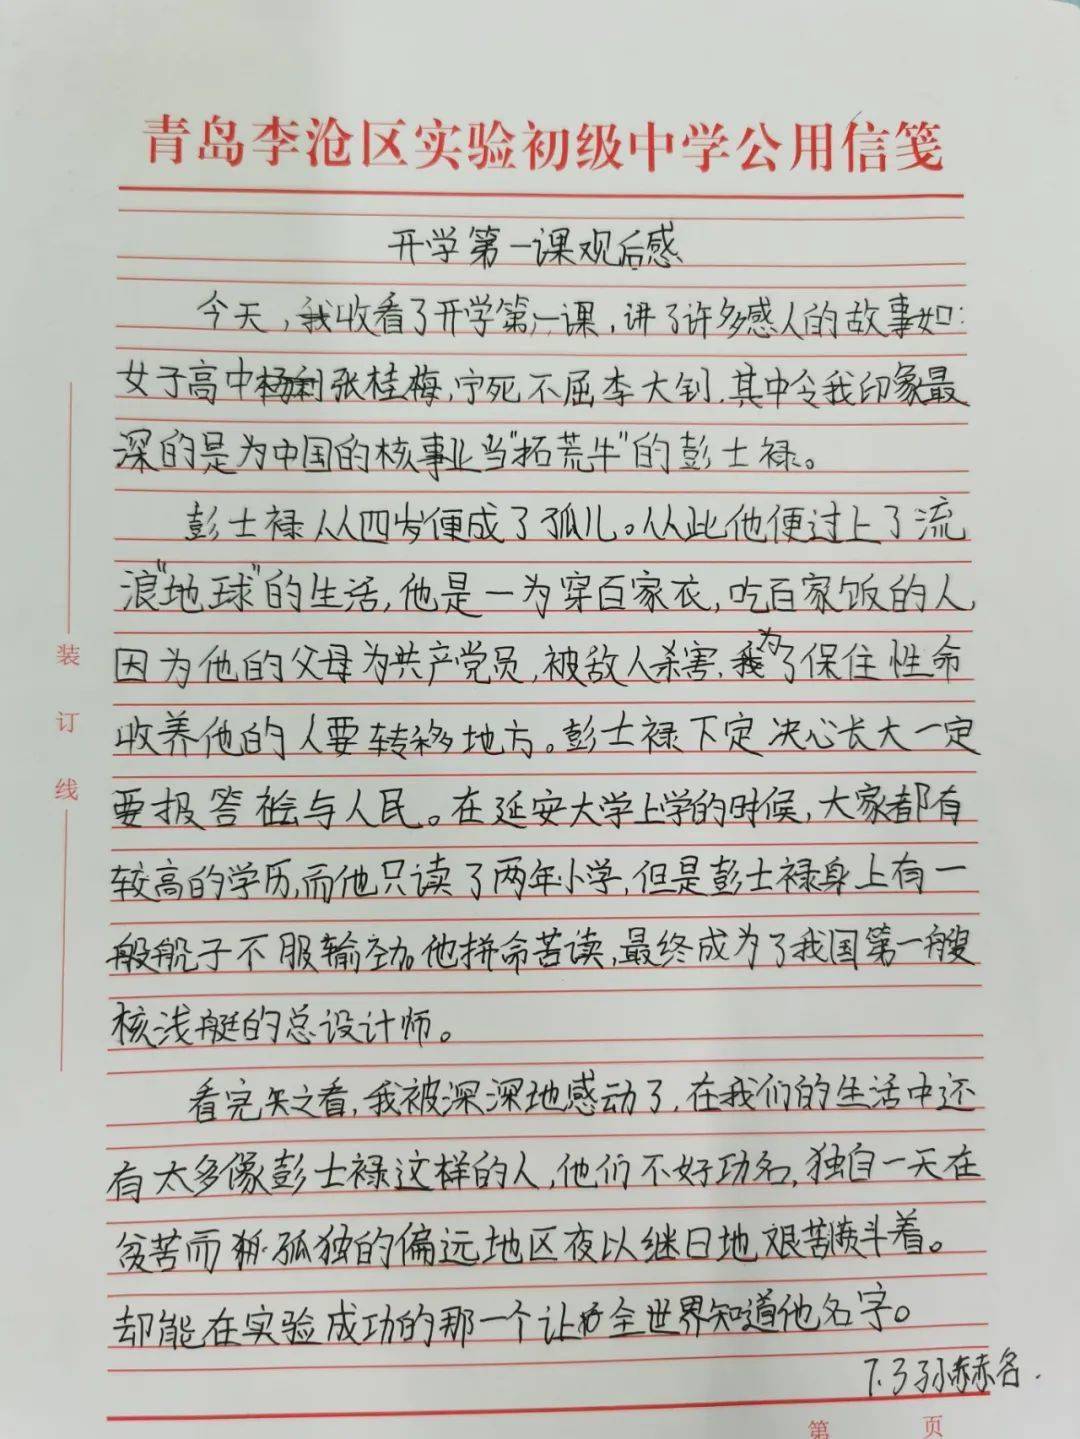 青岛李沧区实验初级中学公用信笺
开学第一课观后感
今天，我收看了开学第一课，讲了许多感人的故事如：
女子高中张桂梅，宁死不屈李大钊，其中令我印象最
深的是为中国的核事业当"拓荒牛"的彭士禄。
彭士禄从四岁便成了孤儿。从此他便过上了流
浪"地球"的生活，他是一为穿百家衣，吃百家饭的人，
因为他的父母为共产党员，被敌人杀害，为了保住性命
收养他的人要转移地方。彭士禄下定决心长大一定
要报答社会与人民。在延安大学上学的时候，大家都有
较高的学历，而他只读了两年小学，但是彭士禄身上有一
般子不服输劲。他拼命苦读，最终成为了我国第一艘
核浅艇的总设计师。
看完之看，我被深深地感动了，在我们的生活中还
有太多像彭士禄这样的人，他们不好功名，独自一天在
贫苦而孤独的偏远地区夜以继日地艰苦奋斗着。
却能在实验成功的那一个让全世界知道他名字。
7.3孙赫名.
装
订
线
第 页